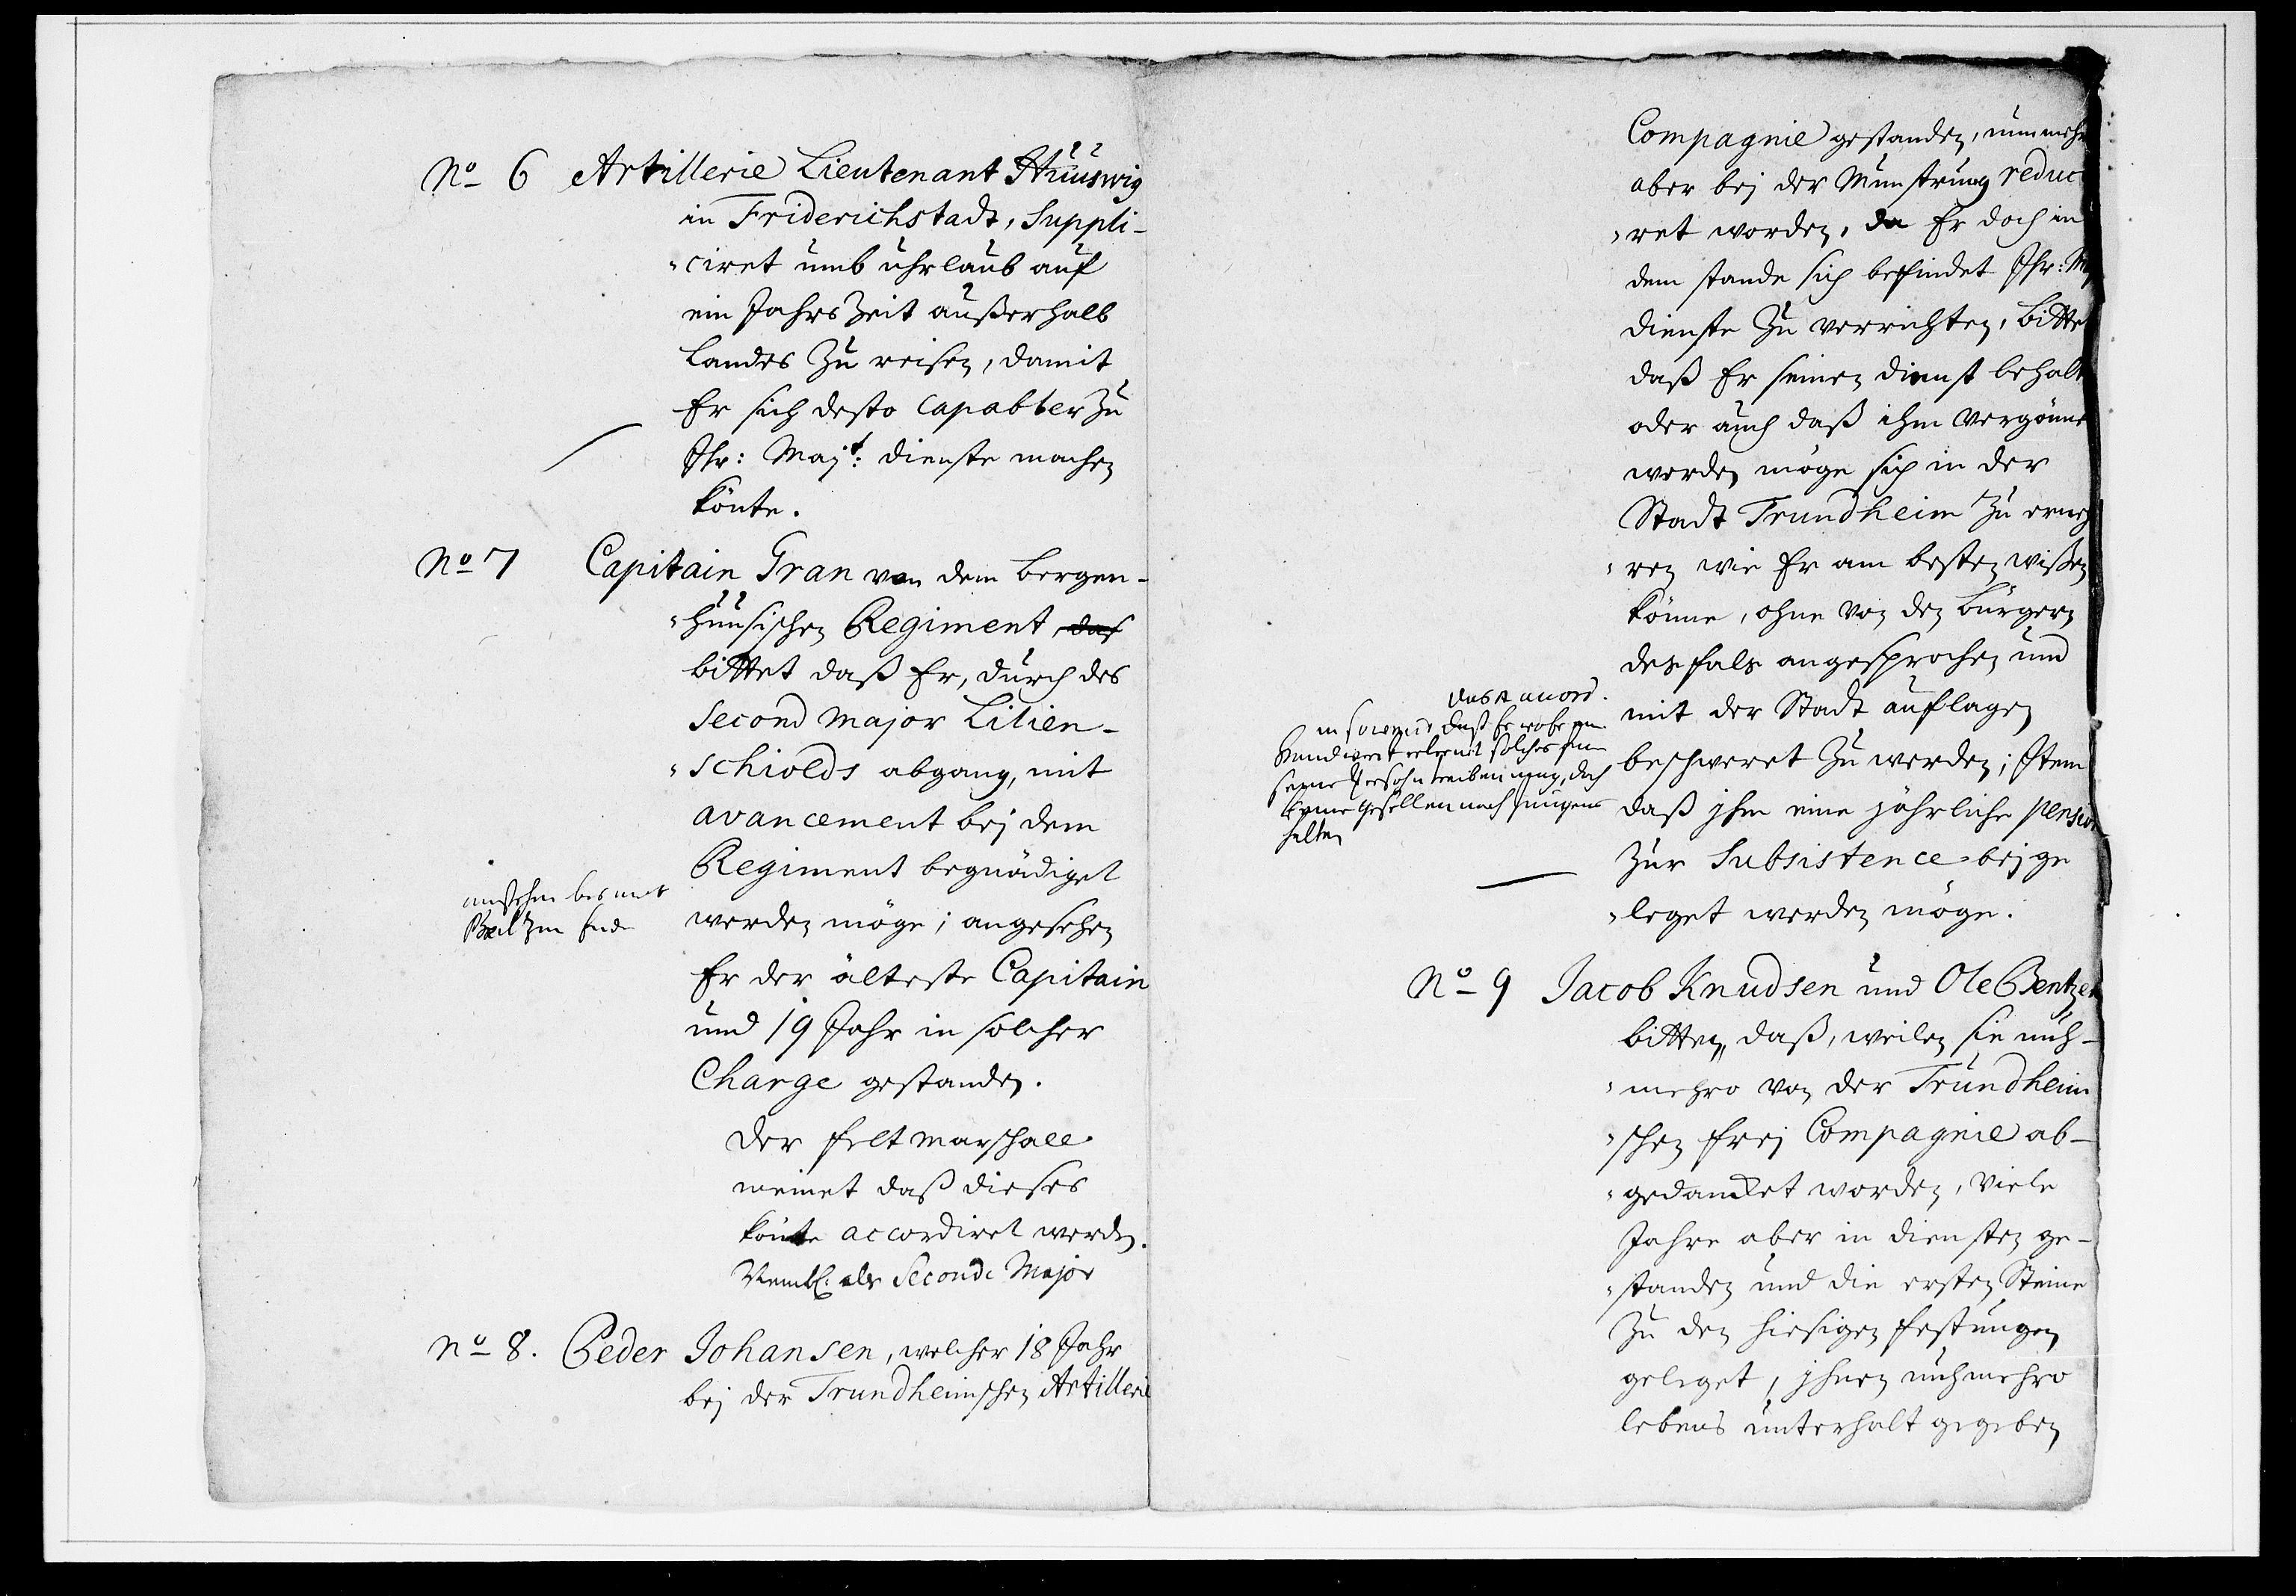 No 6 Artillerie Lieutenant Huuswig
in Friderichstadt, Suppli-
ciret umb uhrlaub auf
ein Jahrs Zeit außerhalb
Landes Zu reisen, damit
Er sich desto capabler Zu
Ihr: Majt: dienste machen
könte.
No 7 Capitain Gran von dem Bergen-
huusischen Regiment das
bittet daß Er, durch des
Second Major Lilien-
schiolds abgang, mit
avancement bej dem
Regiment begnädiget
werden möge; angesehen
Er der älteste Capitain
und 19 Jahr in solcher
Charge gestanden.
Der feltmarschall
meinet daß dieses
könte accordiret werden.
als Seconde Major
No 8. Peder Johansen, welcher 18 Jahr
bej der Trundheimschen Artillerie
Compagnie gestanden, nunmehr
aber bej der Munstrung reduc
ret worden, da Er doch in
dem stande sich befindet Ihr: Maj
dienste Zu verrichten, Bittet
daß Er seinen dienst behalt
oder auch daß ihm vergönnt
werden möge sich in der
Stadt Trundheim Zu erneh
ren wie Er am besten wißen
könne, ohne von den Bürgern
desfals angesprochen und
mit der Stadt auflagen
beschweret Zu werden; Item
daß jhm eine jährliche pension
Zur Subsistence bejge
leget werden möge.
daß Er
Handwerck solches
seine Persohn treiben mag, doch
keine Gesellen noch jungens
halten
No 9 Jacob Knudsen und Ole Bentzen
bitten, daß, weilen sie nuh-
mehro von der Trundheim
schen frej Compagnie ab-
gedancket worden, viele
Jahre aber in diensten ge-
standen und die ersten Steine
Zu den hiesigen festungen
geleget, jhnen nuhmehro
lebens unterhalt gegeben